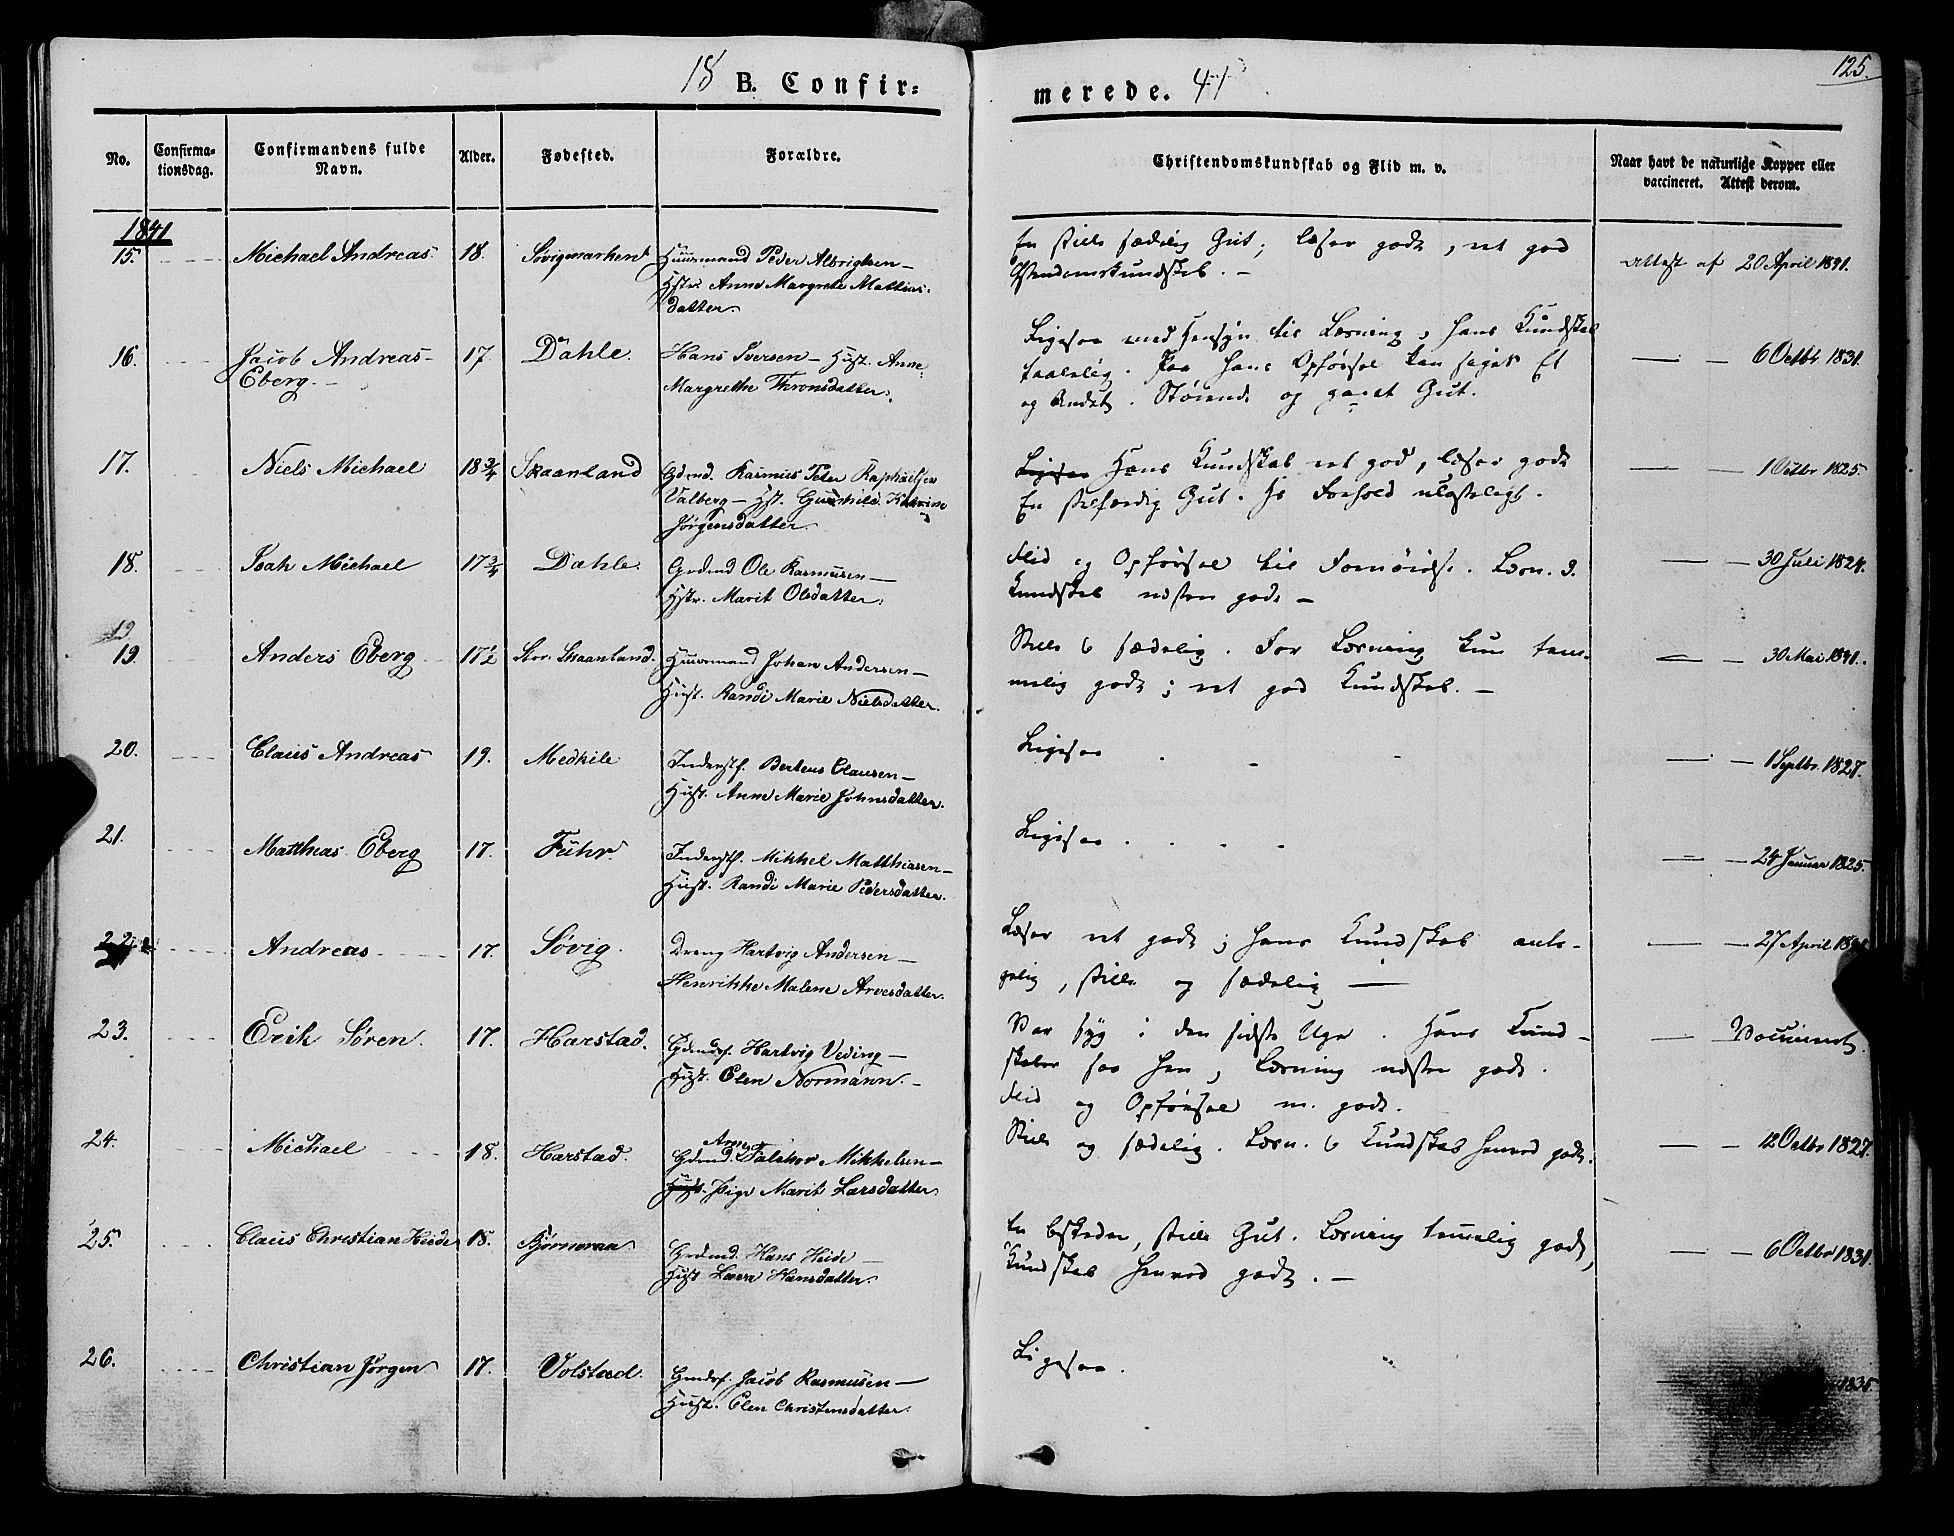 125.
18 B. Confir=
merede. 41
No.
Confirma-
tionsdag.
Confirmandens fulde
Navn.
Alder.
Fødested.
Forældre.
Christendomskundskab og Flid m. v.
Naar havt de naturlige Kopper eller
vaccineret. Attest derom.
1841
15. Michael Andreas. 18. Huusmand Peder Albrigtsen —
Hstr. Anne Margrete Mathias-
datter.
En stille sædelig Gut; læser godt, ret god
Attest af 20 April 1841.
16. Jacob Andreas 17. Dahle. Hans Iversen — Hust. Anne
Eberg. — Margrethe Thronsdatter.
Ligesaa med Hensyn til Læsning, hans Kundskab
taalelig. Paa hans Opførsel kan siges Et
og Andet.
— — 6 Octbr 1831.
17. Niels Michael 18 3/4 Skaanland Gdmd. Rasmus Peter Raphaelsen
Valberg — Hst. Gunhild Katrine
Jørgensdatter
Ligesaa Hans Kundskab ret god, læser godt
En Gut. Hs Forhold ulasteligt.
— — 1 Octbr 1825.
18. Isak Michael 17 3/4 Dahle. Grdmd Ole Rasmusen —
Hstr. Marit Olsdatter.
Flid og Opførsel til Fornøielse. Læsn. o.
Kundskab næsten godt —
— — 30 Juli 1824.
19
19. Anders Eberg 17 1/2 Stor Skaanland. Huusmand Johan Andersen —
Hust. Randi Marie Nielsdatter.
Stille & sædelig. For Læsning kun tem-
melig godt; ret god Kundskab. —
— — 30 Mai 1841.
20. Claus Andreas 19. Medkile Inderstf. Berteus Clausen —
Hust. Anne Marie Johnsdatter.
Ligesaa
— — 1 Septbr. 1827.
21. Matthias Eberg 17. Fuhr. Inderstf. Mikkel Matthiasen —
Hust. Randi Marie Pedersdatter.
Ligesaa
— — 24 Januar 1825.
22. Andreas 17. Søvig. Dreng Hartvig Andersen —
Henrikke Malene Arvesdatter.
Læser ret godt; hans Kundskab anta-
gelig, stille og sædelig —
— — 27 April
23. Erik Søren. 17. Harstad. Hartvig Veding —
Hust. Elen Normann. —
Var syg i den sidste Uge. Hans Kund-
skaber saa hen, Læsning næsten godt.
Flid og Opførsel m. godt.
— Vaccineret.
24. Michael 18. Harstad. Gdmd. Arne Falchor Mikkelsen —
Hust. Pige Marit Larsdatter.
Stille og sædelig. Læsn. & Kundskab henved godt.
— — 12 Octbr 1827.
25. Claus Christian Heide 18. Bjørneraa Grdmd. Hans Heide —
Hust Hansdatter.
En beskeden, stille Gut. Læsning temmelig godt,
Kundskab henved godt. —
— — 6 Octbr 1831.
26. Christian Jørgen 17. Volstad. Jacob Rasmusen —
Hust. Elen Christensdatter.
Ligesaa.
— 1835.